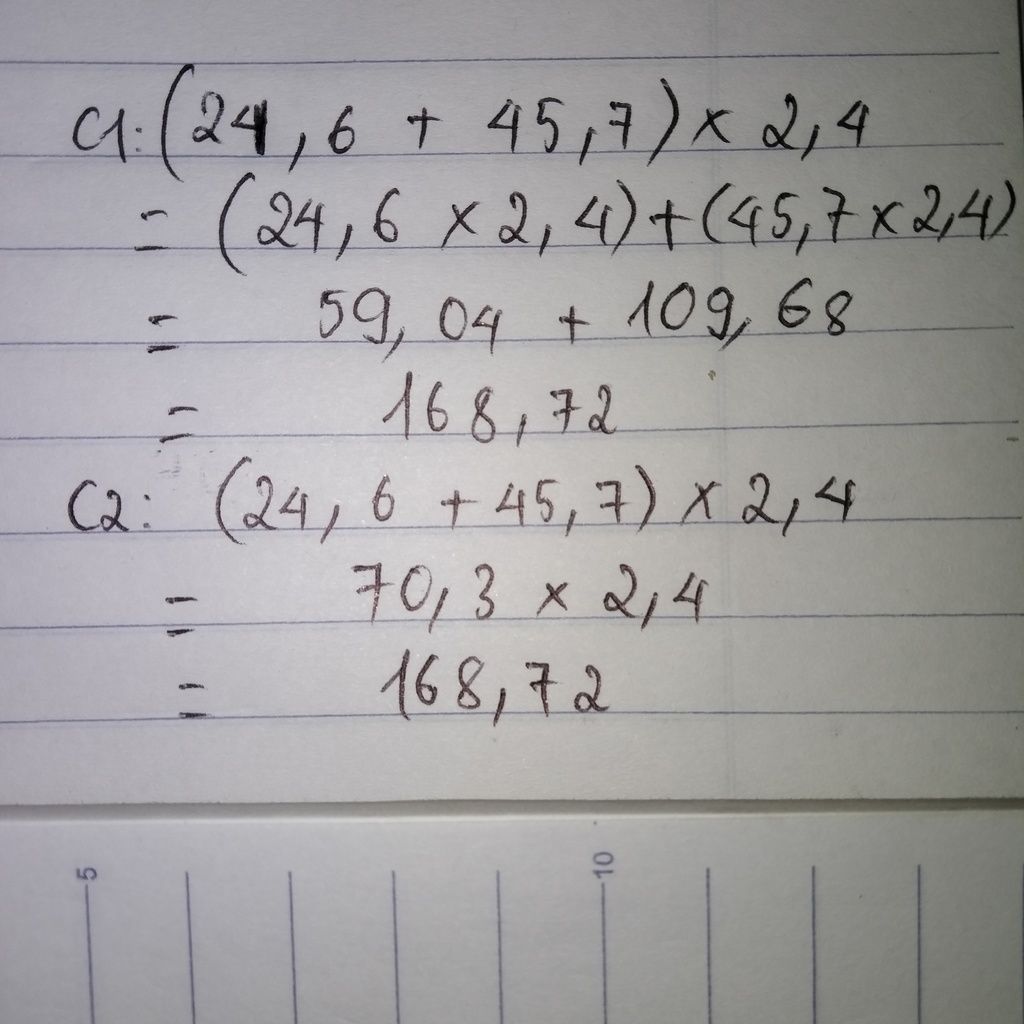 C1: (24,6 + 45,7) x 2,4
= (24,6 x 2,4) + (45,7 x 2,4)
= 59,04 + 109,68
= 168,72
C2: (24,6 + 45,7) x 2,4
= 70,3 x 2,4
= 168,72
5 10